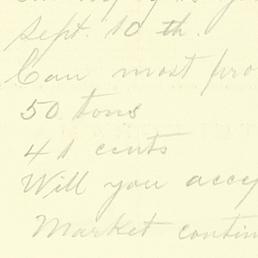 Sept. 10 th.
Can most pro
50 tons
41 cents
Will you accep
Market contin